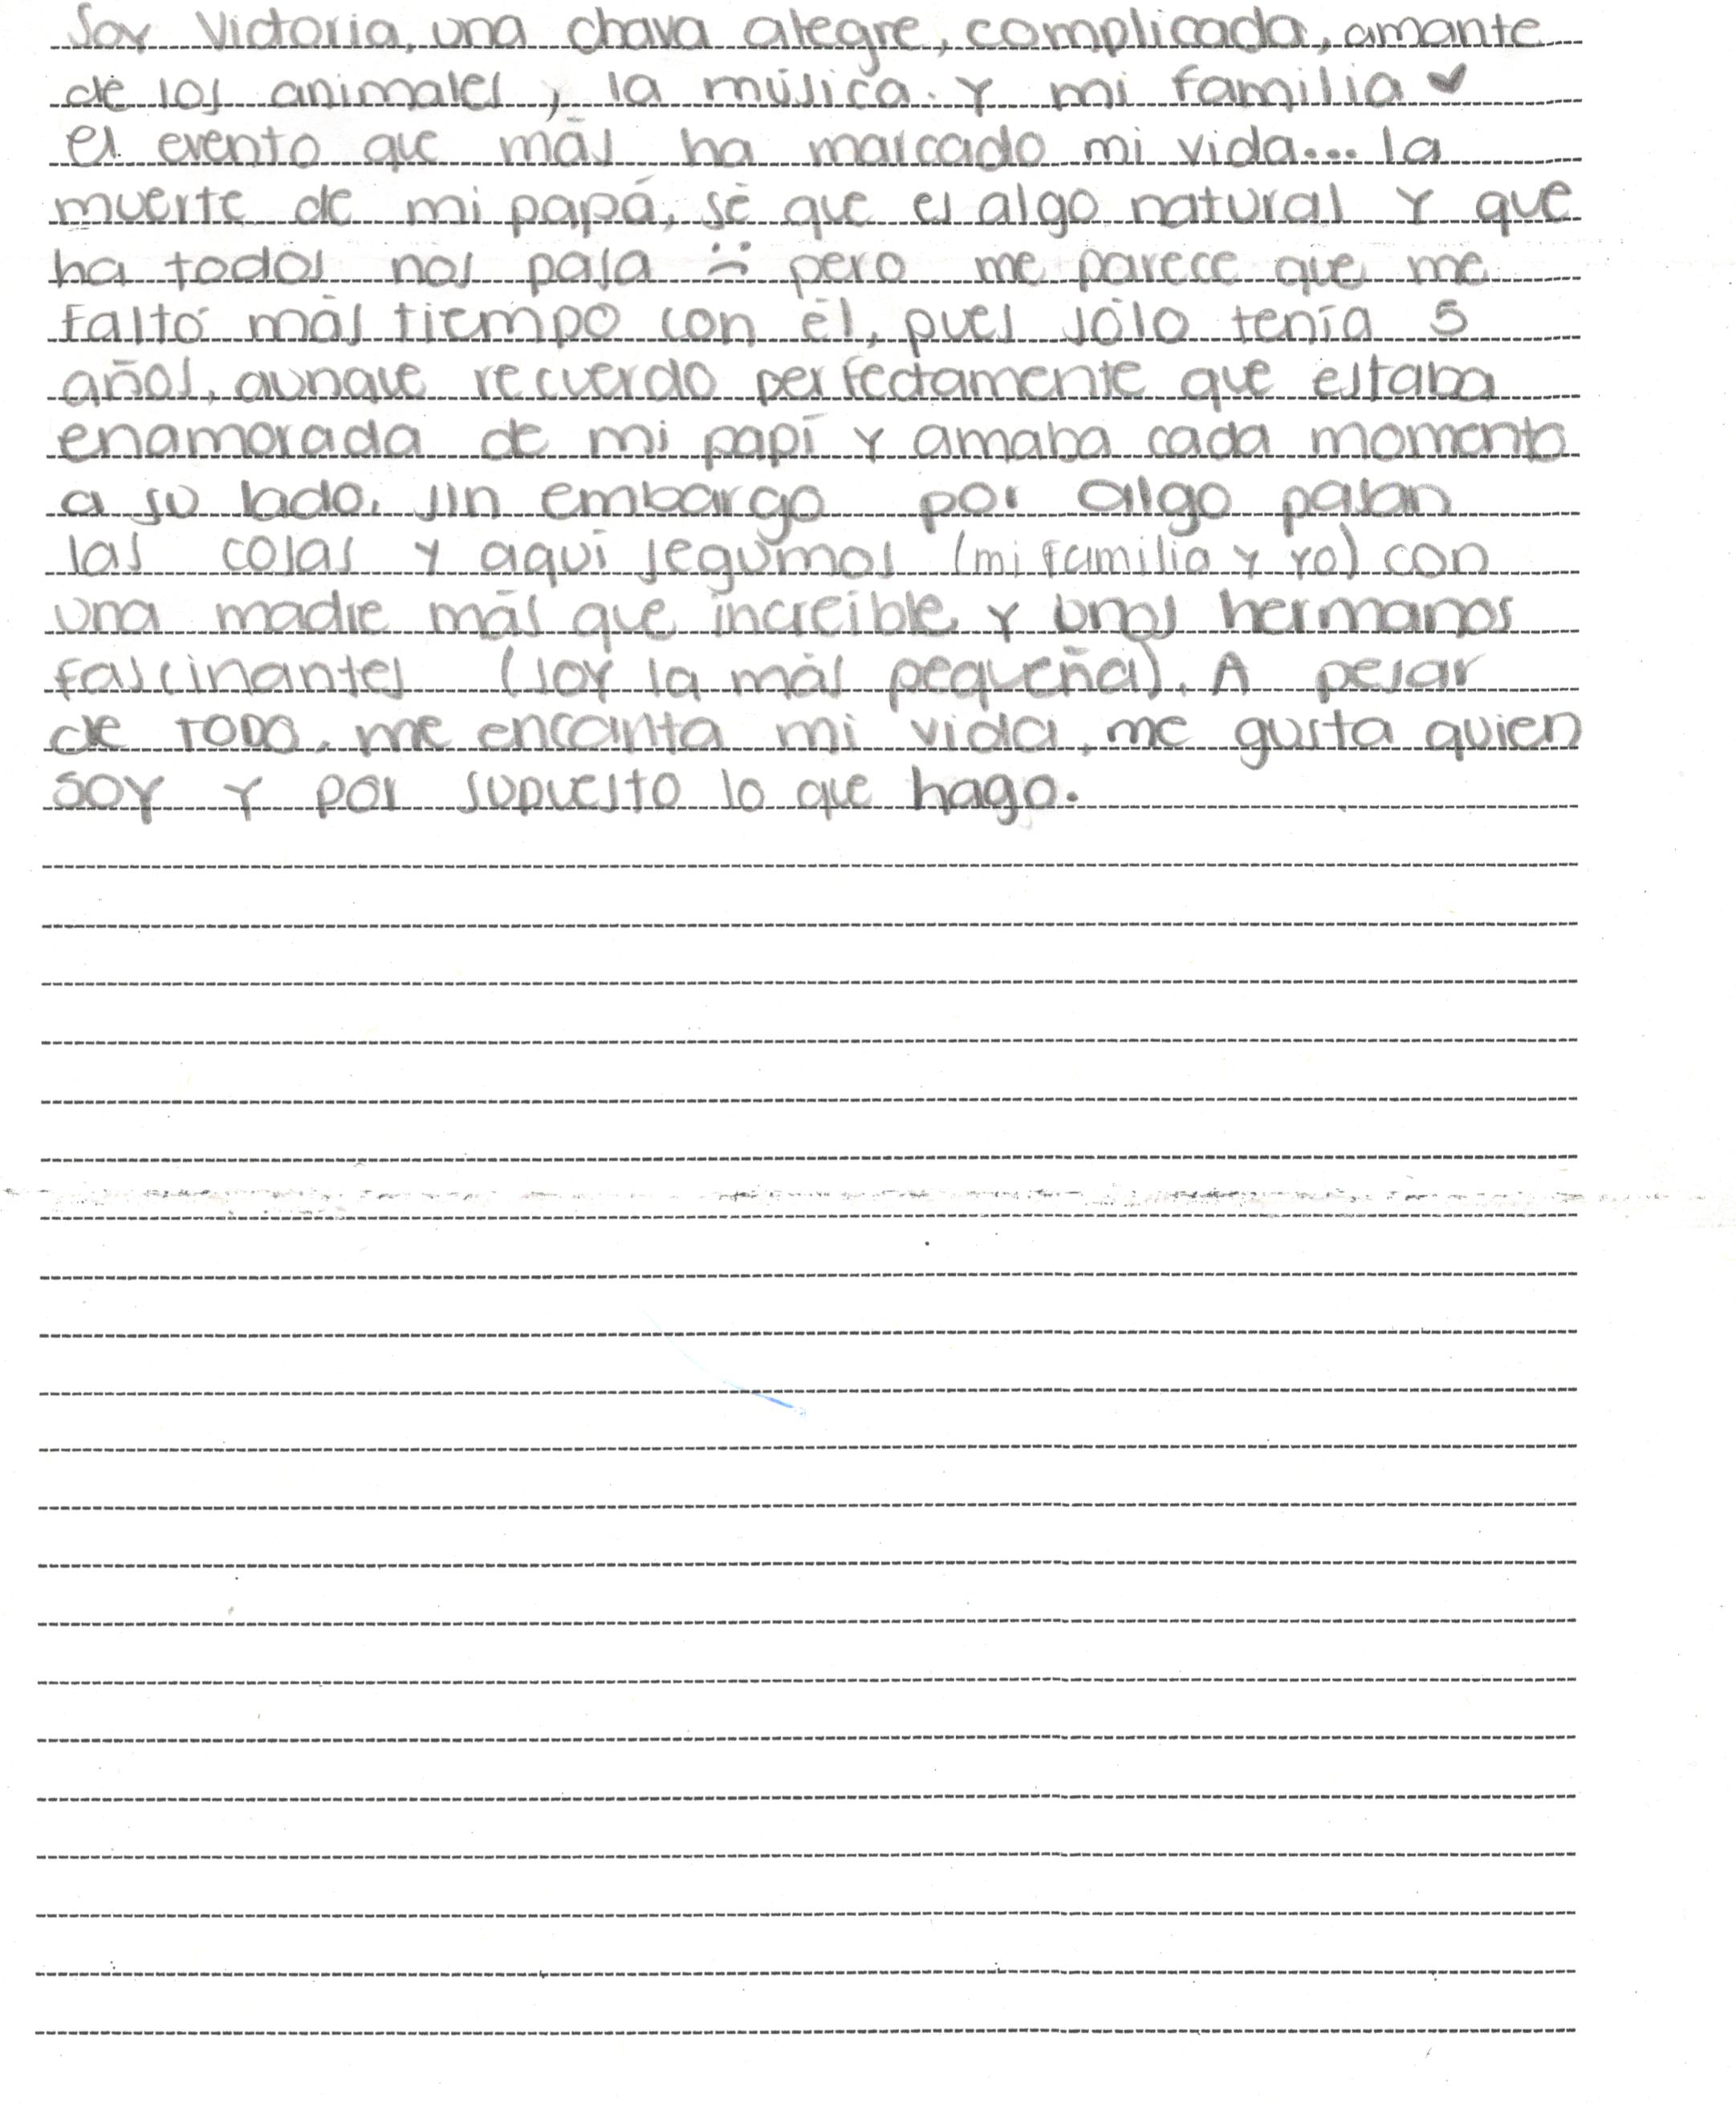 Soy Victoria, una chava alegre, complicada, amante
de los animales, la música. Y mi familia ♥
el evento que más ha marcado mi vida... la
muerte de mi papá, sé que es algo natural y que
ha todos nos pasa :( pero me parece que me
faltó más tiempo con él, pues sólo tenía 5
años, aunque recuerdo perfectamente que estaba
enamorada de mi papí y amaba cada momento
a su lado. sin embargo por algo pasan
las cosas y aquí segumos (mi familia y yo) con
una madre más que increíble y unos hermanos
fascinantes (soy la más pequeña). A pesar
de TODO. me encanta mi vida, me gusta quien
soy y por supuesto lo que hago.